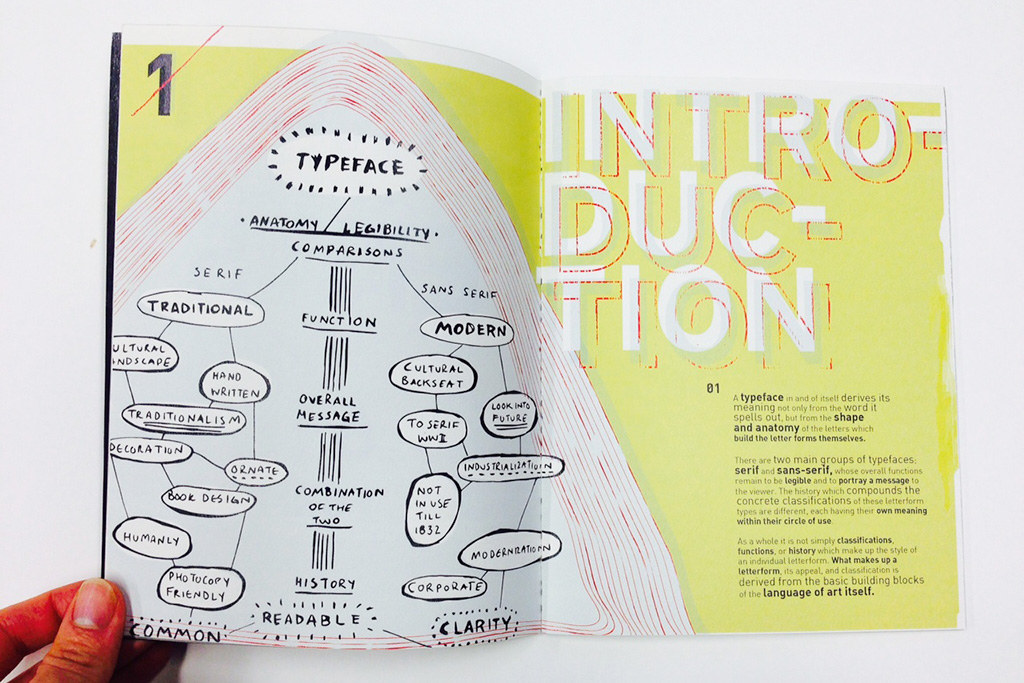 1
TYPEFACE
• ANATOMY / LEGIBILITY •
COMPARISONS
SERIF
TRADITIONAL
ULTURAL
NDSCAPE
HAND
WRITTEN
TRADITIONALISM
DECORATION
ORNATE
BOOK DESIGN
HUMANLY
PHOTOCOPY
FRIENDLY
COMMON
FUNCTION
OVERALL
MESSAGE
COMBINATION
OF THE
TWO
HISTORY
READABLE
SANS SERIF
MODERN
CULTURAL
BACKSEAT
LOOK INTO
FUTURE
TO SERIF
WWII
INDUSTRIALIZATION
NOT
IN USE
TILL
1832
MODERNIZATION
CORPORATE
CLARITY
INTRO-
DUC-
TION
01
A typeface in and of itself derives its
meaning not only from the word it
spells out, but from the shape
and anatomy of the letters which
build the letter forms themselves.
There are two main groups of typefaces;
serif and sans-serif, whose overall functions
remain to be legible and to portray a message to
the viewer. The history which compounds the
concrete classifications of these letterform
types are different, each having their own meaning
within their circle of use.
As a whole it is not simply classifications,
functions, or history which make up the style of
an individual letterform. What makes up a
letterform, its appeal, and classification is
derived from the basic building blocks
of the language of art itself.